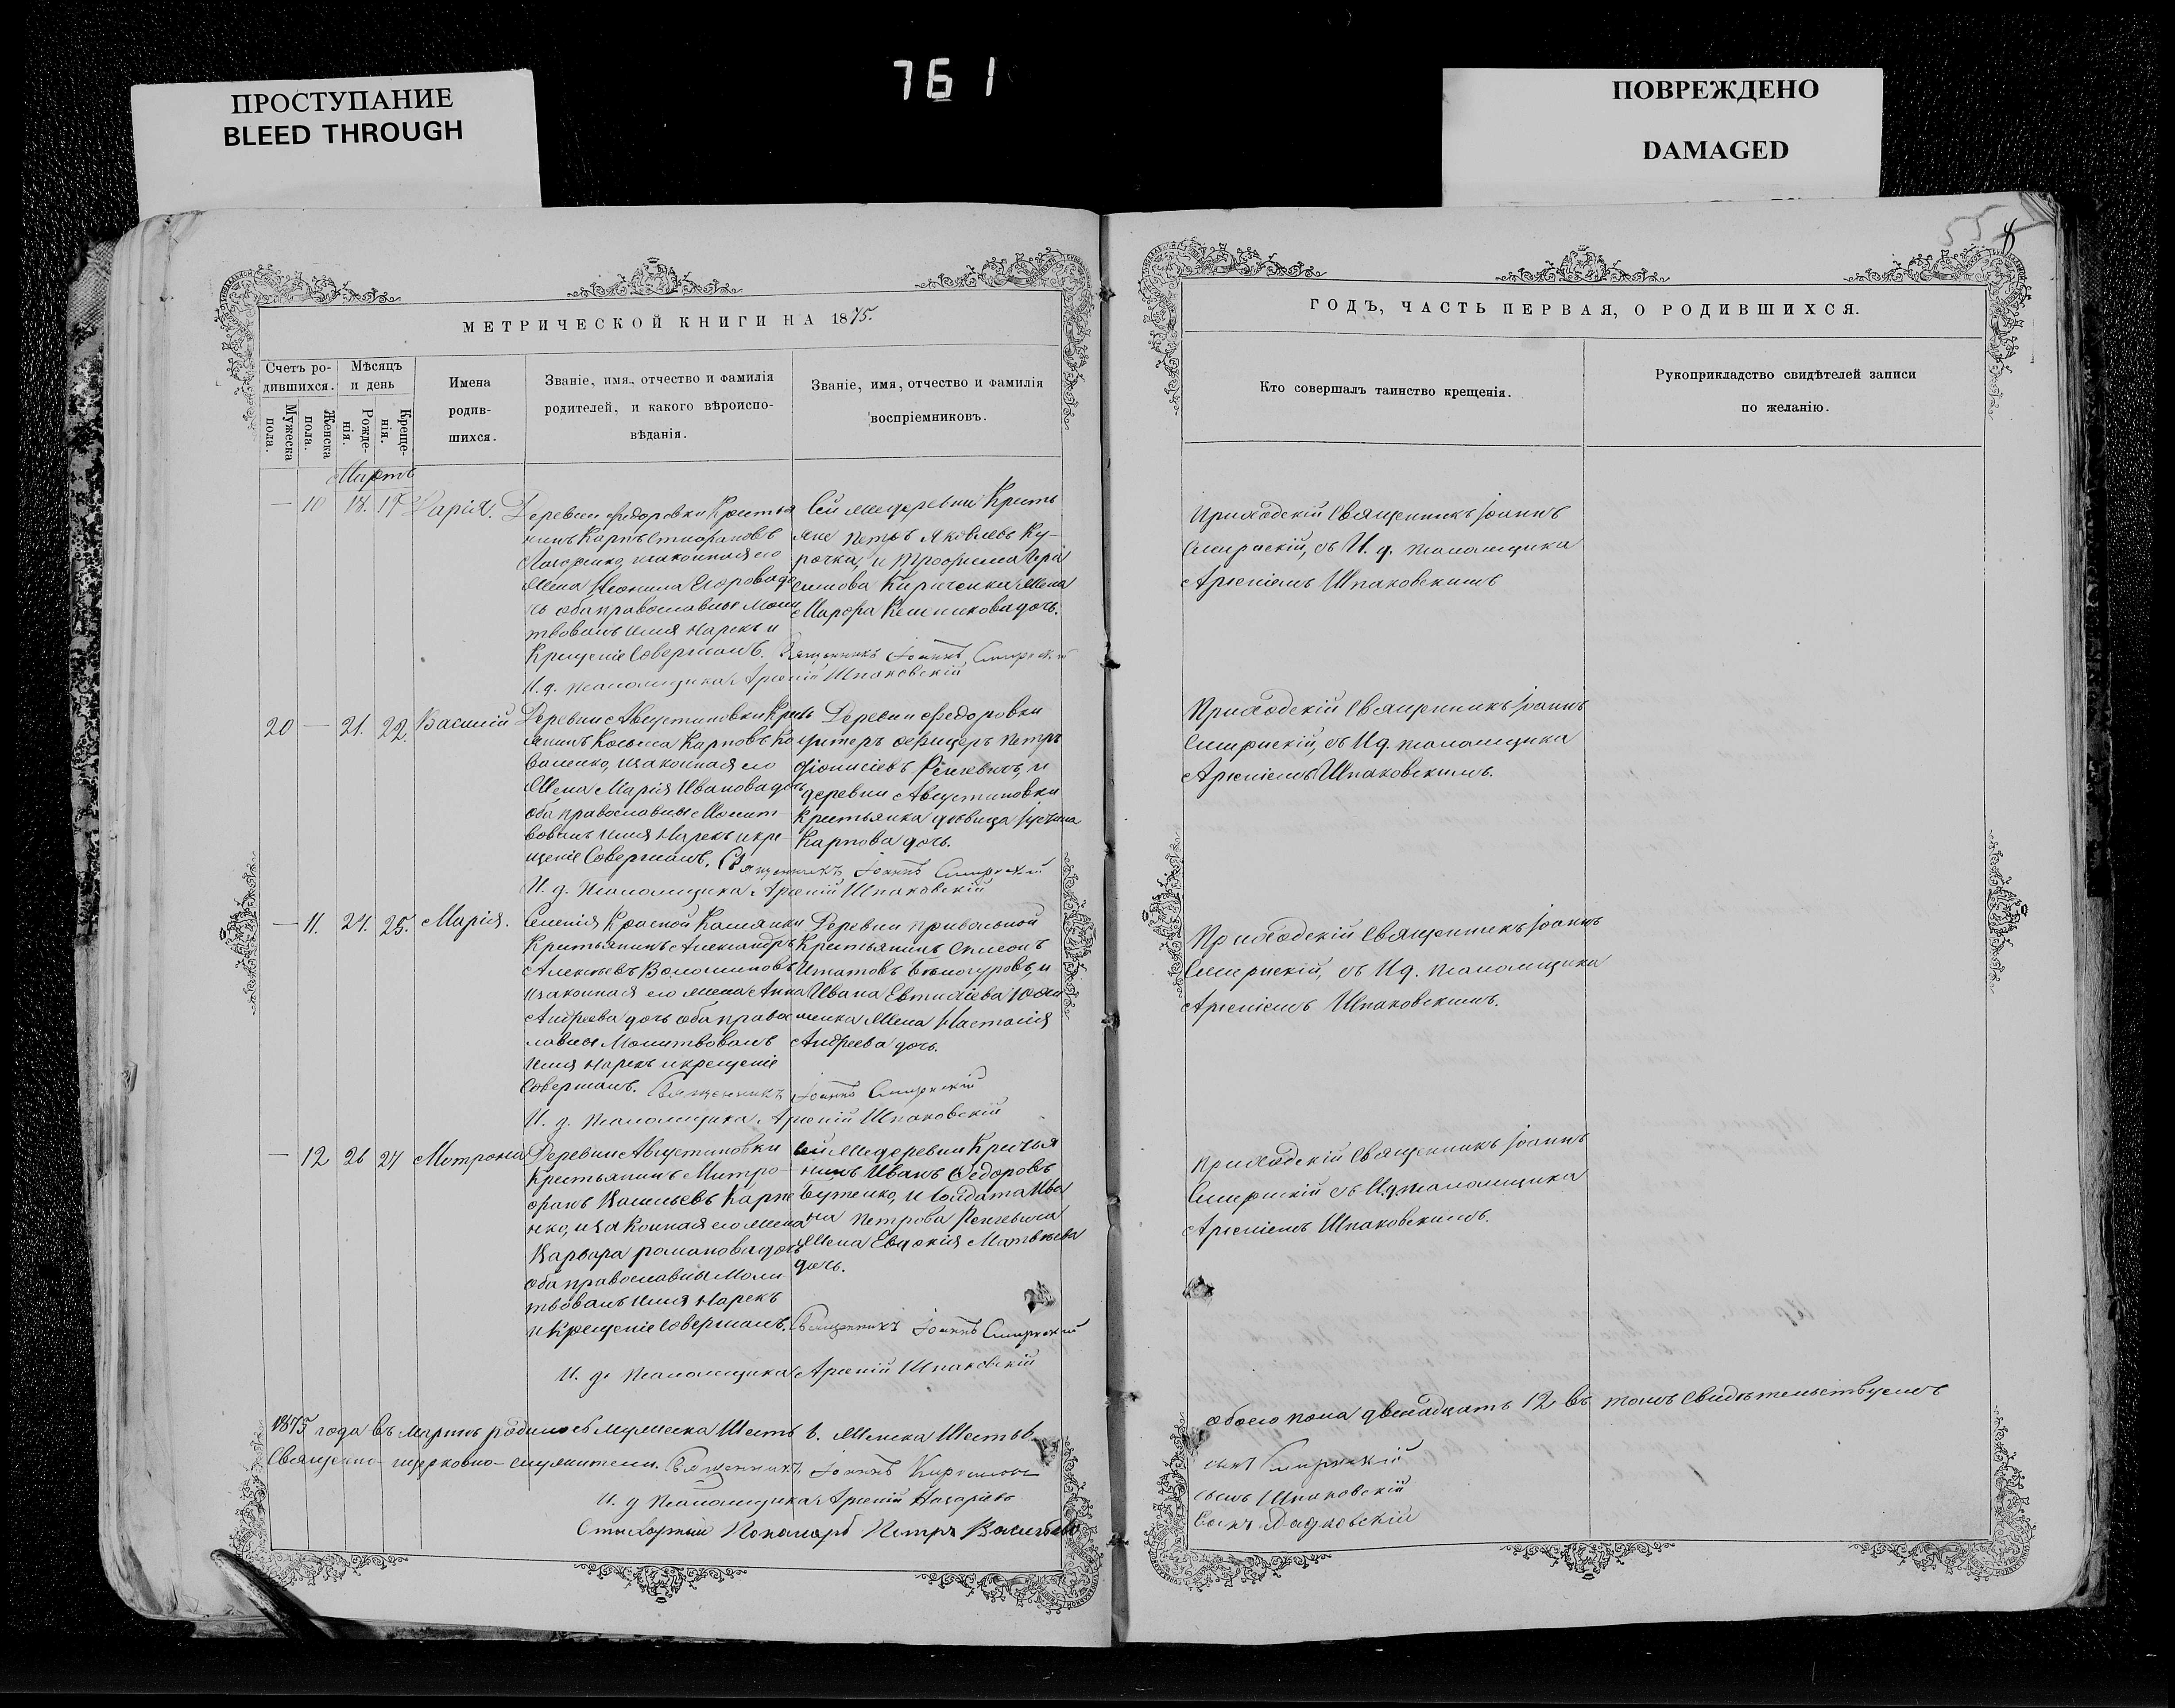 761
ПРОСТУПАНИЕ
BLEED THROUGH
ПОВРЕЖДЕНО
DAMAGED
МЕТРИЧЕСКОЙ КНИГИ НА 1875.
Счетъ ро-
дившихся.
Мужеска пола.
Женска пола.
Мѣсяцъ
и день
Рожде-
нія.
Креще-
нія.
Имена
родив-
шихся.
Званіе, имя, отчество и фамилія
родителей, и какого вѣроиспо-
вѣданія.
Званіе, имя, отчество и фамилія
воспріемниковъ.
Мартъ
— 10 18. 19 Дарія.
Деревни Федоровки Крестья
нинъ Карпъ
и законная его
жена Егорова до
чь оба православные Моли
твовалъ имя Нарекъ и
Крещеніе Совершалъ. Священникъ Іоаннъ
И. д. псаломщика Арсеній Шпаковскій
Сей же деревни Кресть
яне Петръ Яковлевъ Ку-
рочка, и Трофима Гера
симова Кириченка жена
Марфа дочь.
20 — 21. 22. Василій
Деревни Августиновки Кресть
янинъ Косьма Карповъ Ко
валенко, и законная его
Жена Марія Иванова дочь
оба православные Молит
вовалъ имя Нарекъ и кре-
щеніе Совершалъ. Священникъ Іоаннъ
И. д. Псаломщика Арсеній Шпаковскій
Деревни Федоровки
унтеръ офицеръ Петръ
Діонисіевъ и
деревни Августиновки
Крестьянка дѣвица Іустина
Карпова дочь.
— 11. 24. 25. Марія.
Селенія Красной Камянки
Крестьянинъ Александръ
Алексѣевъ
и законная его жена Анна
Андреева дочь оба право
славные Молитвовалъ
имя Нарекъ и крещеніе
Совершалъ. Священникъ Іоаннъ
И. д. псаломщика Арсеній Шпаковскій
Деревни Привольной
Крестьянинъ Симеонъ
Игнатовъ Бѣлогуровъ, и
Ивана Евтихіева
жена Настасія
Андреева дочь.
— 12 26 27 Матрона
Деревни Августиновки
Крестьянинъ Митро-
фанъ Васильевъ Карпе
нко, и законная его жена
Варвара романова дочь
оба православные Моли
твовалъ имя Нарекъ
и Крещеніе Совершалъ. Священникъ Іоаннъ
И. д. псаломщика Арсеній Шпаковскій
Сей же деревни Крестья
нинъ Иванъ Федоровъ
Бутенко, и Солдата Ива
на Петрова
жена Евдокія Матвѣева
дочь.
1875 года въ мартѣ родилось мужеска Шесть 6. женска Шесть 6.
Священно- и церковно- служители. Священникъ Іоаннъ
И. д псаломщика Арсеній Назаріевъ
Пономарь Петръ Васильевъ
8
ГОДЪ, ЧАСТЬ ПЕРВАЯ, О РОДИВШИХСЯ.
Кто совершалъ таинство крещенія.
Рукоприкладство свидѣтелей записи
по желанію.
Приходскій Священникъ Іоаннъ
съ И. д. псаломщика
Арсеніемъ Шпаковскимъ
Приходскій Священникъ Іоаннъ
съ И.д. псаломщика
Арсеніемъ Шпаковскимъ.
Приходскій Священникъ Іоаннъ
съ И.д. псаломщика
Арсеніемъ Шпаковскимъ.
Приходскій Священникъ Іоаннъ
съ И.д. псаломщика
Арсеніемъ Шпаковскимъ.
обоего пола двенадцать 12 въ томъ свидѣтельствуемъ
сынъ
сынъ Шпаковскій
сынъ